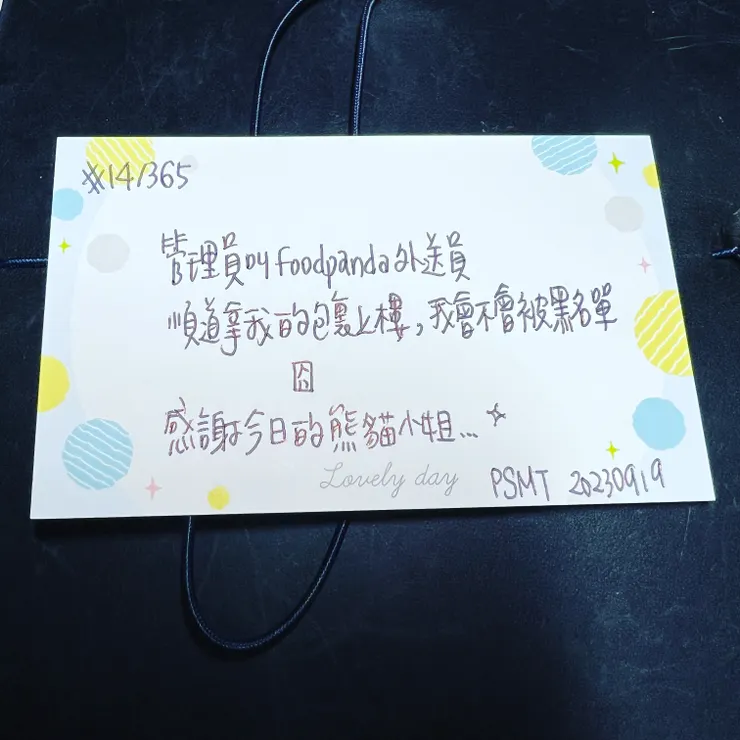 #14/365
管理員叫foodpanda外送員
順道拿我的包裹上樓,我會不會被黑名單
囧
感謝今日的熊貓小姐...☆
Lovely day
PSMT 20230919